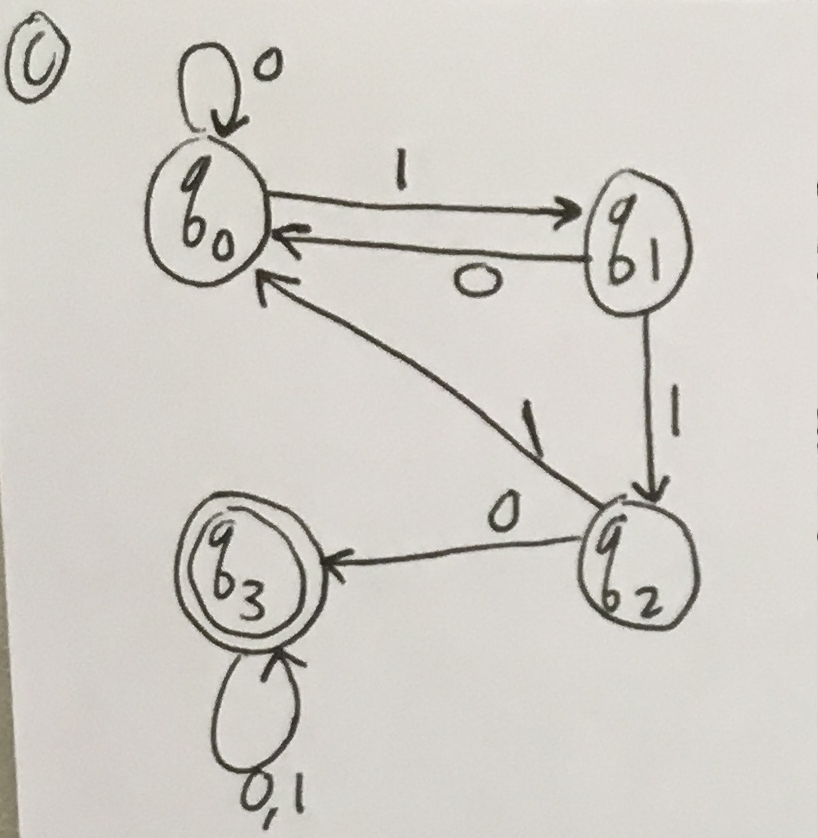 C
0
1
q0
q1
0
1
1
0
q3
q2
0,1